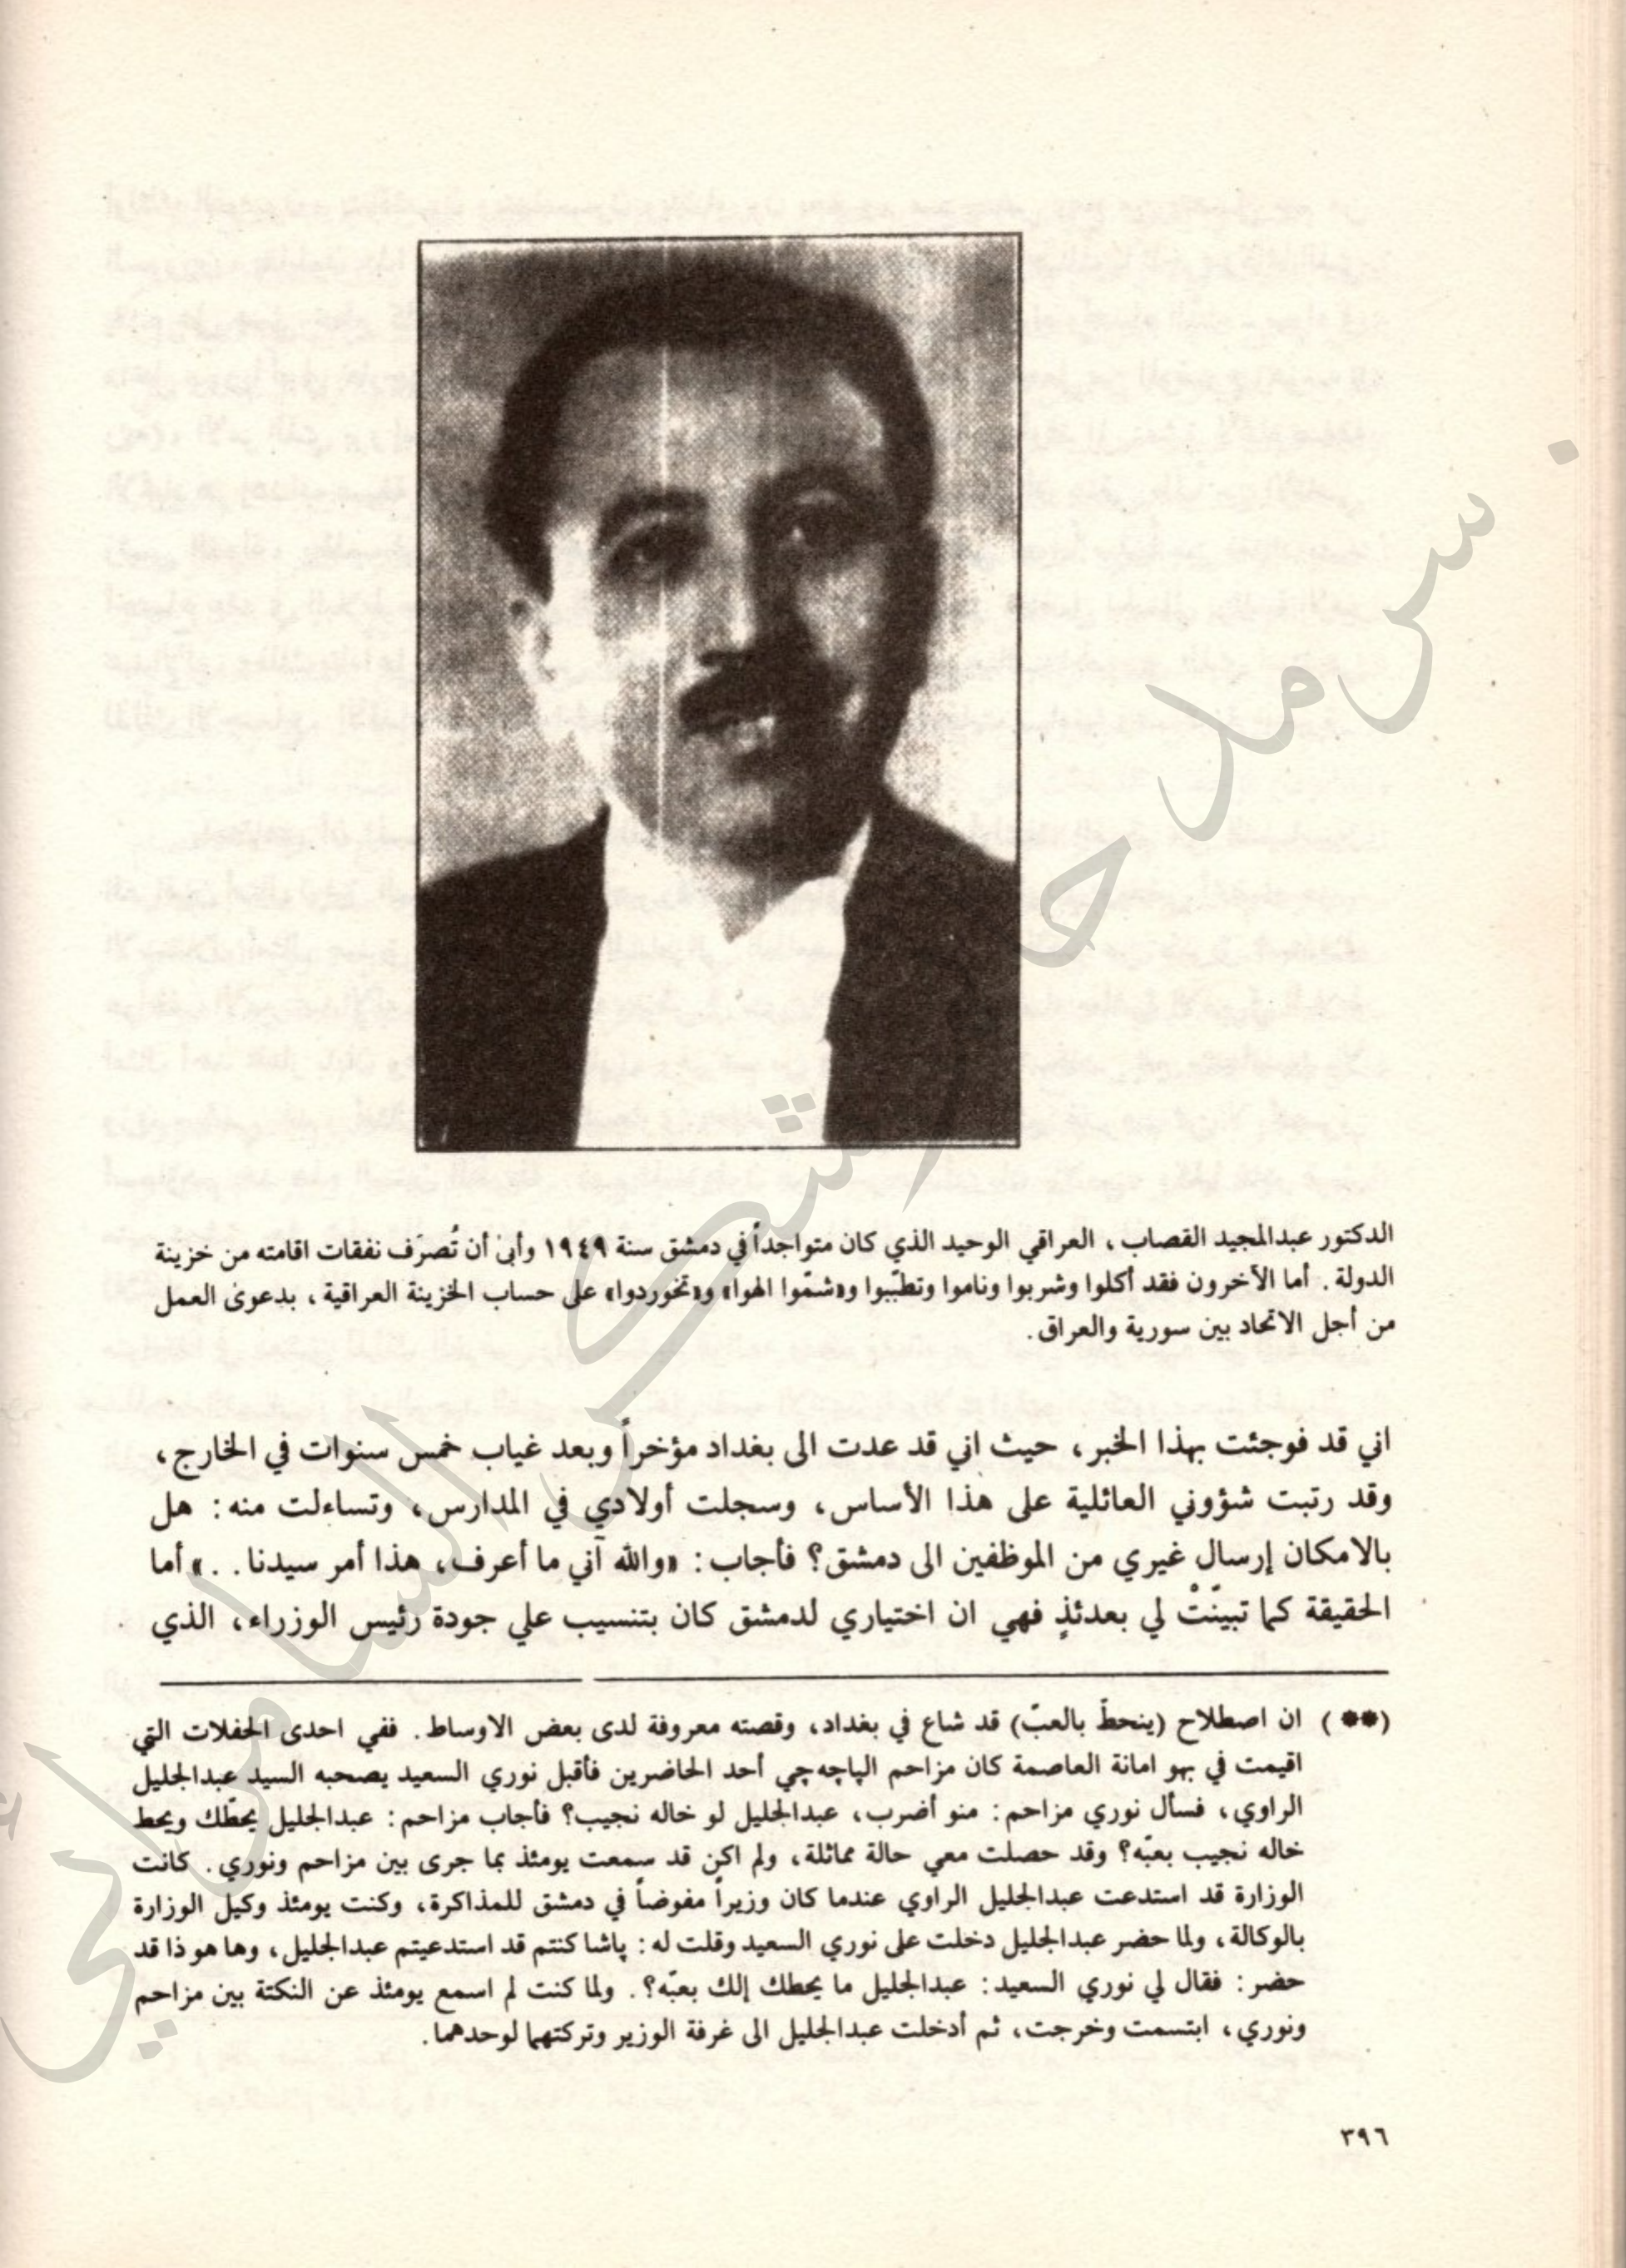 الدكتور عبدالمجيد القصاب، العراقي الوحيد الذي كان متواجداً في دمشق سنة ١٩٤٩ وأبىٰ أن تُصرَف نفقات اقامته من خزينة
الدولة. أما الآخرون فقد أكلوا وشربوا وناموا وتطبّبوا و«شمّوا الهوا» و«تخوردوا» على حساب الخزينة العراقية، بدعوىٰ العمل
من أجل الاتحاد بين سورية والعراق.
اني قد فوجئت بهذا الخبر، حيث اني قد عدت الى بغداد مؤخراً وبعد غياب خمس سنوات في الخارج،
وقد رتبت شؤوني العائلية على هذا الأساس، وسجلت أولادي في المدارس، وتساءلت منه: هل
بالامكان إرسال غيري من الموظفين الى دمشق؟ فأجاب: «والله آني ما أعرف، هذا أمر سيدنا..» أما
الحقيقة كما تبينّتْ لي بعدئذٍ فهي ان اختياري لدمشق كان بتنسيب علي جودة رئيس الوزراء، الذي
(**) ان اصطلاح (ينحطّ بالعبّ) قد شاع في بغداد، وقصته معروفة لدى بعض الاوساط. ففي احدى الحفلات التي
اقيمت في بهو امانة العاصمة كان مزاحم الپاچه چي أحد الحاضرين فأقبل نوري السعيد يصحبه السيد عبدالجليل
الراوي، فسأل نوري مزاحم: منو أضرب، عبدالجليل لو خاله نجيب؟ فأجاب مزاحم: عبدالجليل يحطّك ويحط
خاله نجيب بعبّه؟ وقد حصلت معي حالة مماثلة، ولم اكن قد سمعت يومئذ بما جرى بين مزاحم ونوري. كانت
الوزارة قد استدعت عبدالجليل الراوي عندما كان وزيراً مفوضاً في دمشق للمذاكرة، وكنت يومئذ وكيل الوزارة
بالوكالة، ولما حضر عبدالجليل دخلت على نوري السعيد وقلت له: پاشا كنتم قد استدعيتم عبدالجليل، وها هو ذا قد
حضر: فقال لي نوري السعيد: عبدالجليل ما يحطك إلك بعبّه؟. ولما كنت لم اسمع يومئذ عن النكتة بين مزاحم
ونوري، ابتسمت وخرجت، ثم أدخلت عبدالجليل الى غرفة الوزير وتركتهما لوحدهما.
٣٩٦